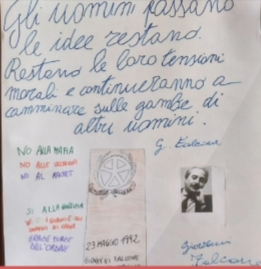 Gli uomini passano
le idee restano.
Restano le loro tensioni
morali e continueranno a
camminare sulle gambe di
altri uomini.
G. Falcone
NO ALLA MAFIA
NO ALLE
NO AL
SI ALLA
23 MAGGIO 1992
GIOVANNI FALCONE
Giovanni
Falcone